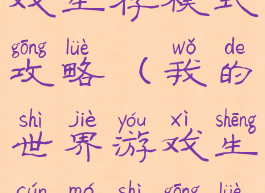 戏生存模式
gōng lüè wǒ de
攻略（我的
shì jiè yóu xì shēng
世界游戏生
cún mó shì gōng lüè